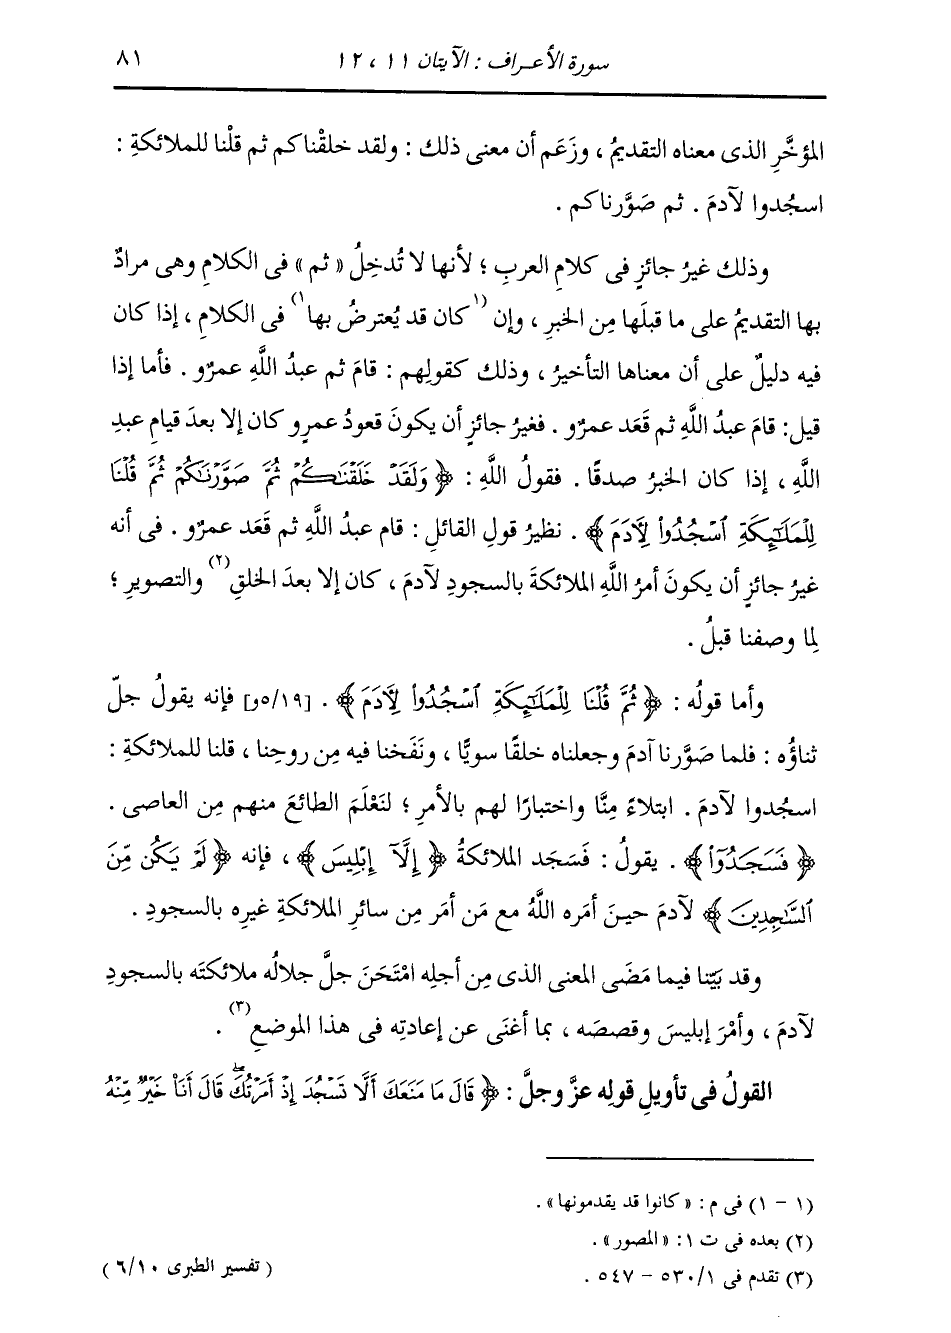 سورة الأعراف : الآيتان ١١ ، ١٢
٨١
المؤخَّرِ الذى معناه التقديمُ ، وزَعَم أن معنى ذلك : ولقد خلقْناكم ثم قلْنا للملائكةِ :
اسجُدوا لآدمَ . ثم صَوَّرناكم .
وذلك غيرُ جائزٍ فى كلامِ العربِ ؛ لأنها لا تُدخِلُ « ثم » فى الكلامِ وهى مرادٌ
بها التقديمُ على ما قبلَها مِن الخبرِ ، وإن (١ كان قد يُعترضُ بها ١) فى الكلامِ ، إذا كان
فيه دليلٌ على أن معناها التأخيرُ ، وذلك كقولِهم : قامَ ثم عبدُ اللَّهِ عمرٌو . فأما إذا
قيل : قامَ عبدُ اللَّهِ ثم قَعَد عمرٌو . فغيرُ جائزٍ أن يكونَ قعودُ عمرٍو كان إلا بعدَ قيامِ عبدِ
اللَّهِ ، إذا كان الخبرُ صدقًا . فقولُ اللَّهِ : ﴿ وَلَقَدْ خَلَقْنَٰكُمْ ثُمَّ صَوَّرْنَٰكُمْ ثُمَّ قُلْنَا
لِلْمَلَٰٓئِكَةِ ٱسْجُدُوا۟ لِءَادَمَ ﴾ . نظيرُ قولِ القائلِ : قام عبدُ اللَّهِ ثم قَعَد عمرٌو . فى أنه
غيرُ جائزٍ أن يكونَ أمرُ اللَّهِ الملائكةَ بالسجودِ لآدمَ ، كان إلا بعدَ الخلقِ (٢) والتصويرِ ؛
لِما وصفنا قبلُ .
وأما قولُه : ﴿ ثُمَّ قُلْنَا لِلْمَلَٰٓئِكَةِ ٱسْجُدُوا۟ لِءَادَمَ ﴾ . [٥/١٩و] فإنه يقولُ جلّ
ثناؤُه : فلما صَوَّرنا آدمَ وجعلناه خلقًا سويًّا ، ونَفَخنا فيه مِن روحِنا ، قلنا للملائكةِ :
اسجُدوا لآدمَ . ابتلاءً مِنَّا واختبارًا لهم بالأمرِ ؛ لنَعْلَمَ الطائعَ منهم مِن العاصى .
﴿ فَسَجَدُوٓا۟ ﴾ . يقولُ : فَسَجَد الملائكةُ ﴿ إِلَّآ إِبْلِيسَ ﴾ ، فإنه ﴿ لَمْ يَكُن مِّنَ
ٱلسَّٰجِدِينَ ﴾ لآدمَ حينَ أمَره اللَّهُ مع مَن أمَر مِن سائرِ الملائكةِ غيرِه بالسجودِ .
وقد بَيَّنا فيما مَضَى المعنى الذى مِن أجلِه امْتَحَنَ جلَّ جلالُه ملائكتَه بالسجودِ
لآدمَ ، وأمْرَ إبليسَ وقصصَه ، بما أغنَى عن إعادتِه فى هذا الموضعِ (٣) .
القولُ فى تأويلِ قولِه عزَّ وجلَّ : ﴿ قَالَ مَا مَنَعَكَ أَلَّا تَسْجُدَ إِذْ أَمَرْتُكَ ۖ قَالَ أَنَا۠ خَيْرٌ مِّنْهُ
(١ - ١) فى م : « كانوا قد يقدمونها » .
(٢) بعده فى ت ١ : « المصور » .
(٣) تقدم فى ٥٣٠/١ - ٥٤٧ .
( تفسير الطبرى ٦/١٠ )